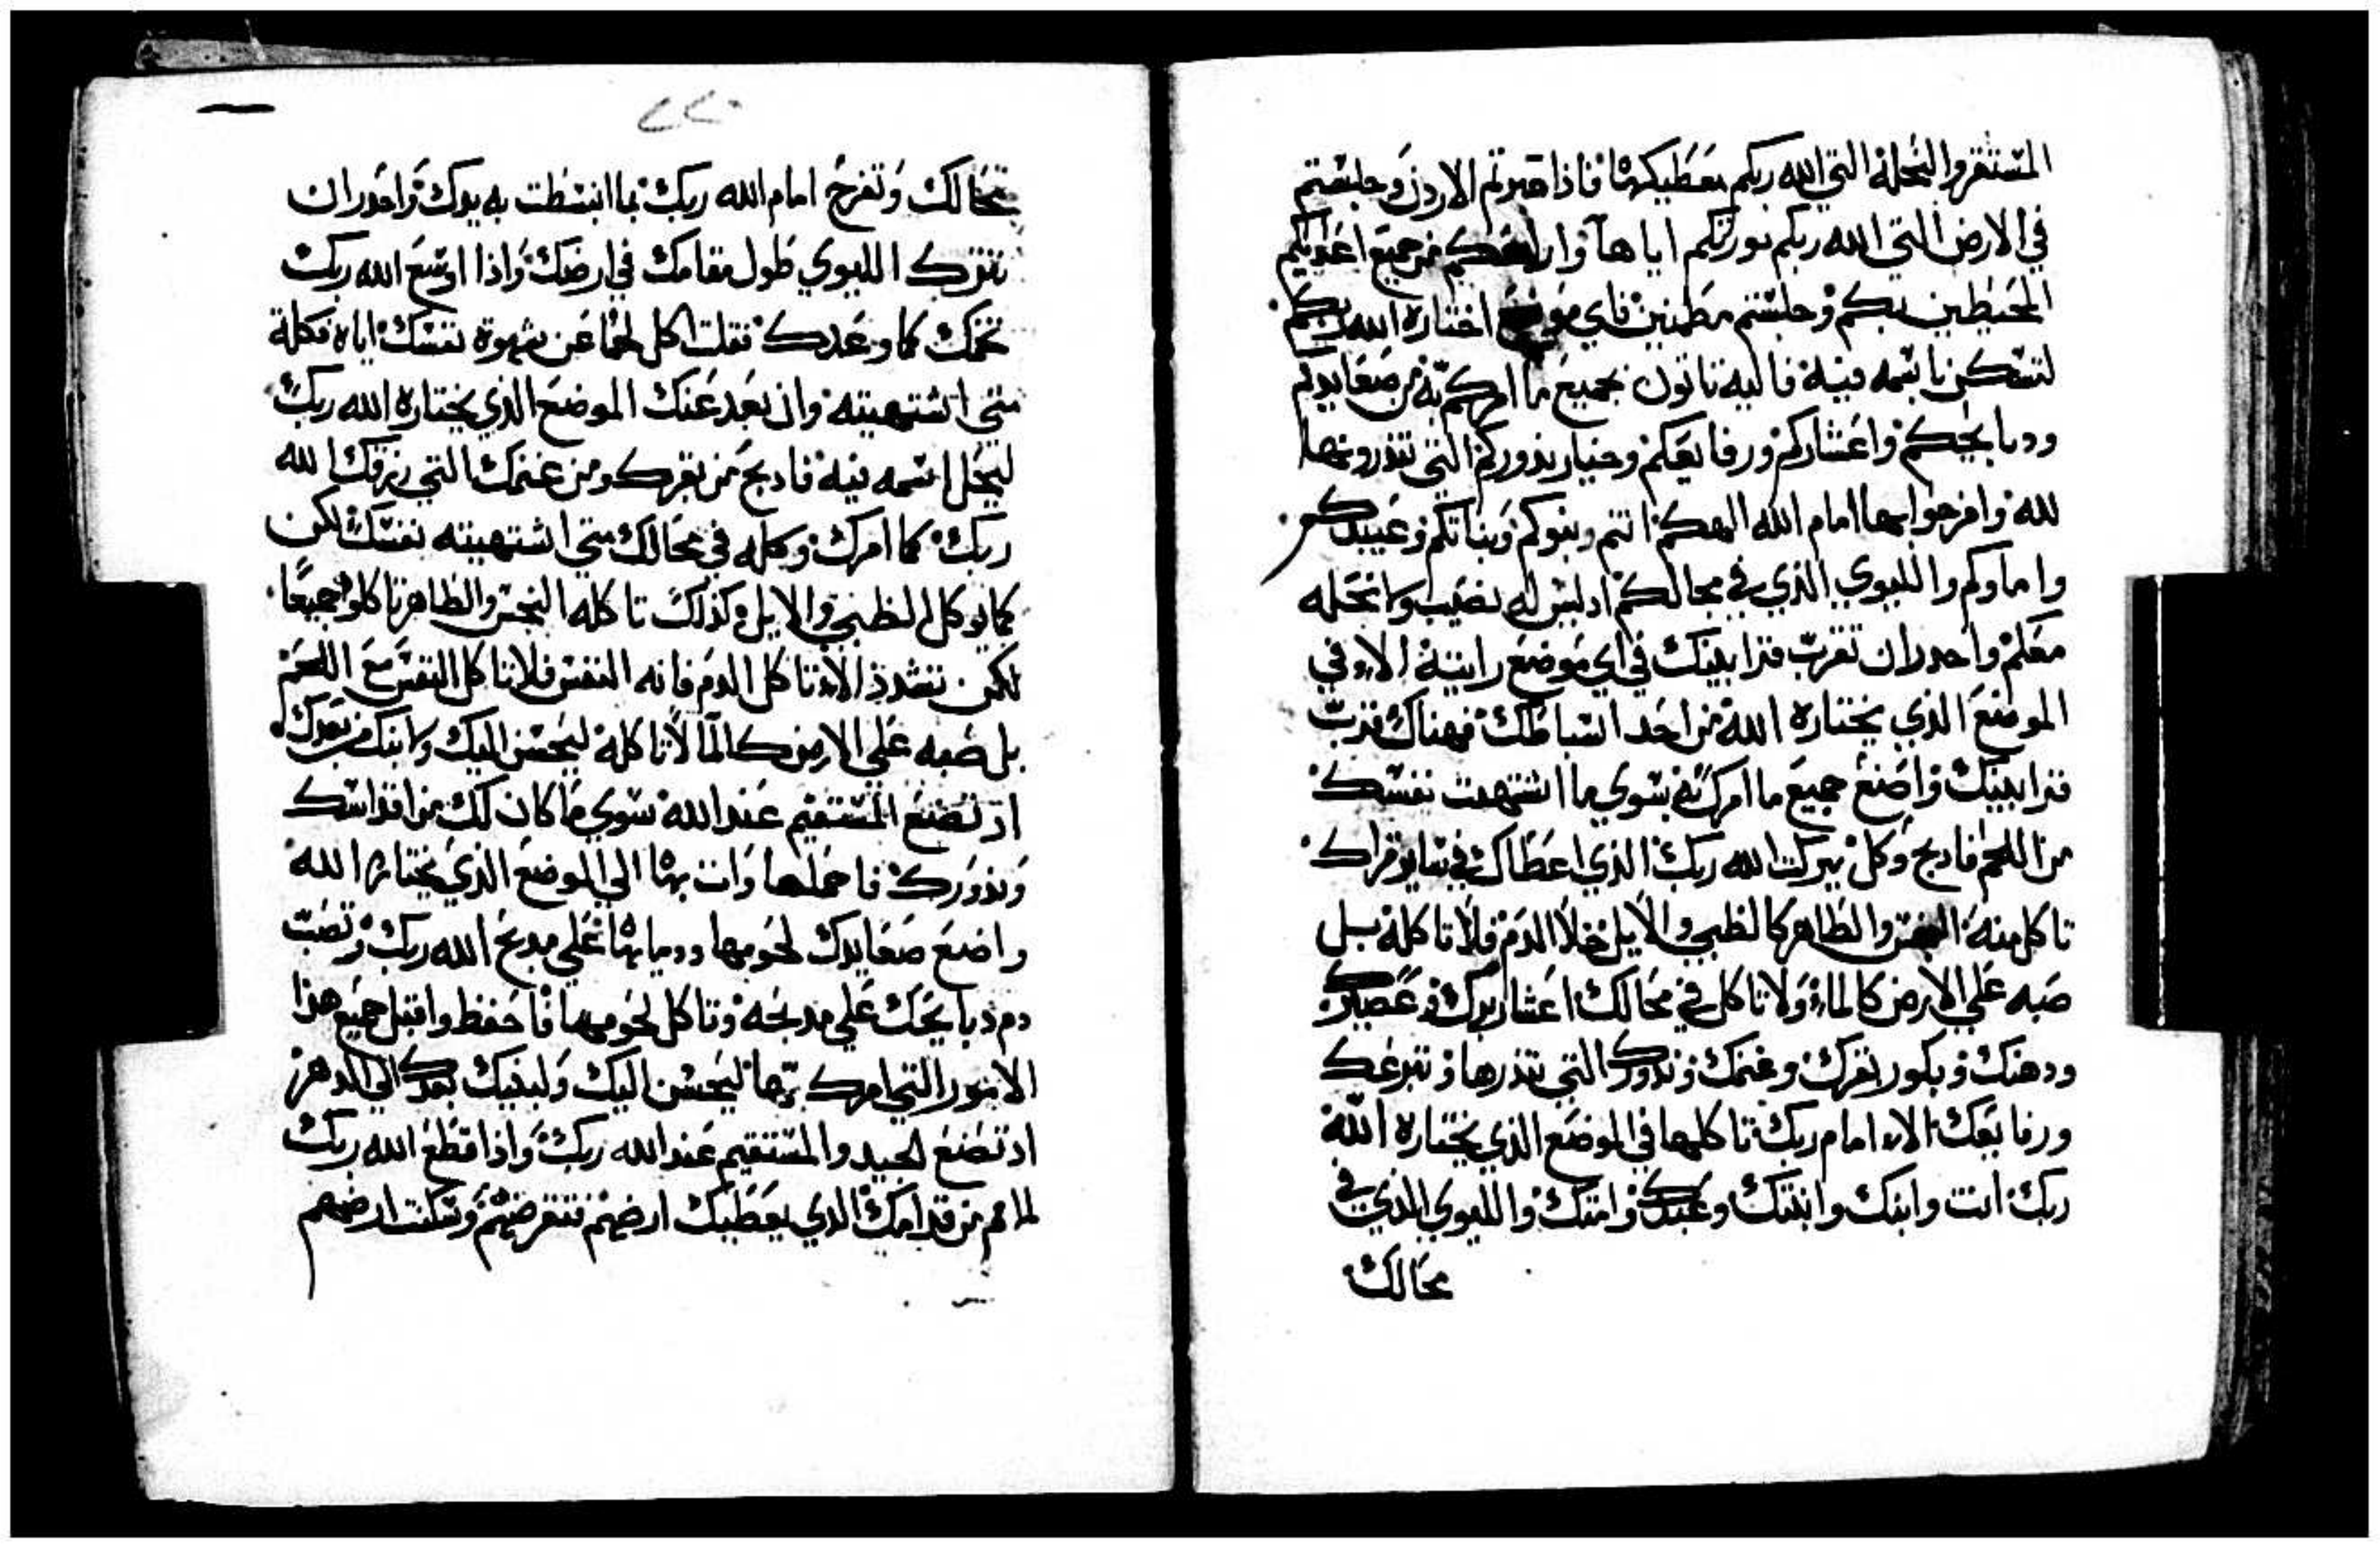 المستقر والنحلة التي الله ربكم معطيكها فاذا عبرتم الاردن وجلستم
في الارض التي الله ربكم مورثكم اياها واراحكم من جميع اعدايكم
المحيطين بكم وجلستم مطمنين فاي موضع اختاره الله ربكم
لتسكن باسمه فيه فاليه تاتون بجميع ما امركم به من صعايدكم
ودبايحكم واعشاركم ورفايعكم وخيار نذوركم التي تنذرونها
لله وافرحوا بها امام الله الهكم انتم وبنوكم وبناتكم وعبيدكم
واماوكم والليوي الذي في محالكم اد ليس له نصيب ولا نحله
معكم واحدر ان تقرب قرابينك في اي موضع رايته الا في
الموضع الذي يختاره الله من احد اسباطك فهناك قرب
قرابينك واصنع جميع ما امرك به سوي ما اشتهت نفسك
من اللحم فادبح وكل ببركت الله ربك الذي اعطاك في ساير قراك
تاكل منه النجس والطاهر كالظبي والايل خلا الدم فلا تاكله بل
صبه علي الارض كالماء ولا تاكل في محالك اعشار برك وعصيرك
ودهنك وبكور بقرك وغنمك ونذورك التي تنذرها وتبرعك
ورفايعك الا امام ربك تاكلها في الموضع الذي يختاره الله
ربك انت وابنك وابنتك وعبدك وامتك والليوي الذي في
محالك
محالك وتفرح امام الله ربك بما انبسطت به يدك واحدر ان
تترك الليوي طول مقامك في ارضك واذا اوسع الله ربك
تخمك كما وعدك فقلت اكل لحما عن شهوة نفسك اياه فكلة
متي اشتهيته وان بعد عنك الموضع الذي يختاره الله ربك
ليحل اسمه فيه فادبح من بقرك ومن غنمك التي رزقك الله
ربك كما امرك وكله في محالك متي اشتهيته نفسك لكن
كما يوكل الظبي والايل كذلك تاكله النجس والطاهر تاكلوه جميعا
لكن تشدد الا تاكل الدم فانه النفس فلا تاكل النفس مع اللحم
بل صبه علي الارض كالما لا تاكله ليحسن اليك ولابنك من بعدك
اد تصنع المستقيم عند الله سوي ما كان لك من اقداسك
ونذورك فاحملها وات بها الي الموضع الذي يختاره الله
واصنع صعايدك لحومها ودماها علي مدبح الله ربك وتصب
دم دبايحك علي مدبحه وتاكل لحومها فاحفظ واقبل جميع هذا
الامور التي امرك بها ليحسن اليك ولبنيك بعدك الي الدهر
اد تصنع الجيد والمستقيم عند الله ربك واذا قطع الله ربك
الامم من قدامك الذي يعطيك ارضهم فتقرضهم وسكنت ارضهم